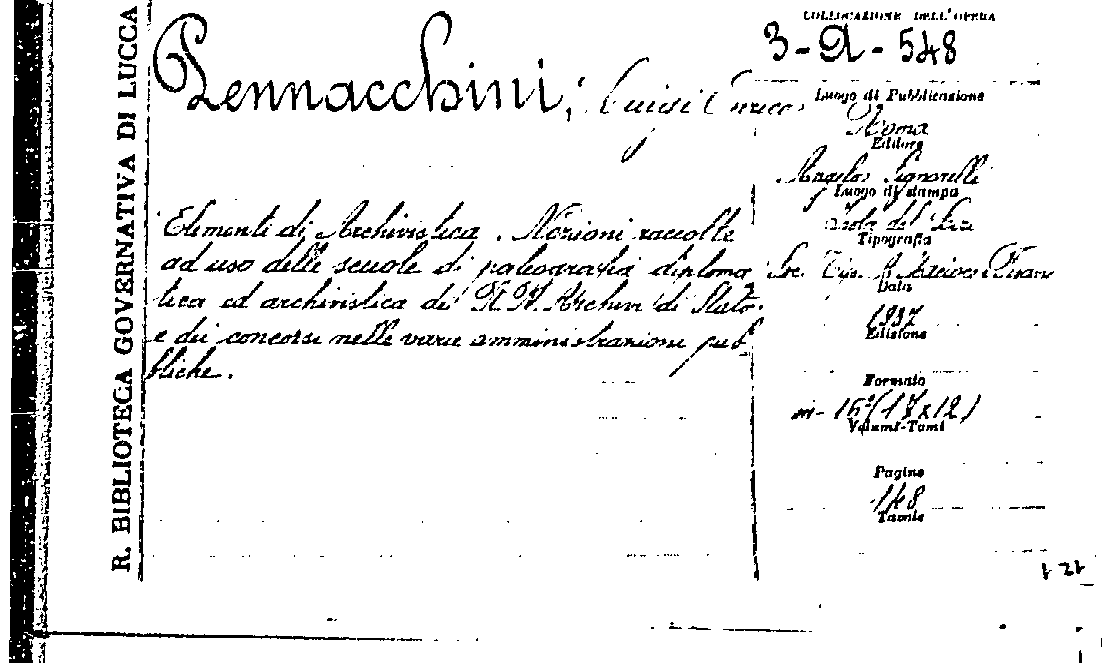 R. BIBLIOTECA GOVERNATIVA DI LUCCA
Pennacchini, Luigi Enrico
Elementi di Archivistica. Nozioni raccolte
ad uso delle scuole di paleografia diploma
tica ed archivistica dei R.R. Archivi di Stato
e dei concorsi nelle varie amministrazioni pub-
bliche.
COLLOCAZIONE DELL'OPERA
3-A-548
Luogo di Pubblicazione
Roma
Editore
Angelo Signorelli
Luogo di stampa
Isola del Liri
Tipografia
Soc. Tip. A. Macioce e Pisani
Data
1937
Edizione
Formato
in-16°(17x12)
Volumi-Tomi
Pagine
148
Tavole